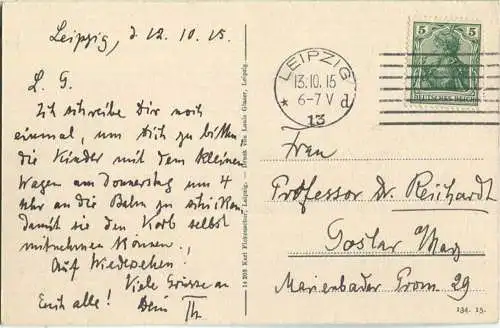 Leipzig, d 12.10.15.
L. G.
Ich schreibe Dir noch
einmal, um Dich zu bitten
die Kinder mit dem kleinen
Wagen am Donnerstag um 4
Uhr an die Bahn zu schicken,
damit sie den Korb selbst
mitnehmen können.
Auf Wiedersehen!
Viele Grüsse an
Euch alle! Dein Th.
14 203 Karl Fickenscher, Leipzig. — Druck von Louis Glaser, Leipzig.
LEIPZIG
13.10.15
6-7 V
* 13 d
5 5
DEUTSCHES REICH
Frau
Professor Dr. Reichardt
Goslar Harz
Marienbader Prom 29
134. 15.